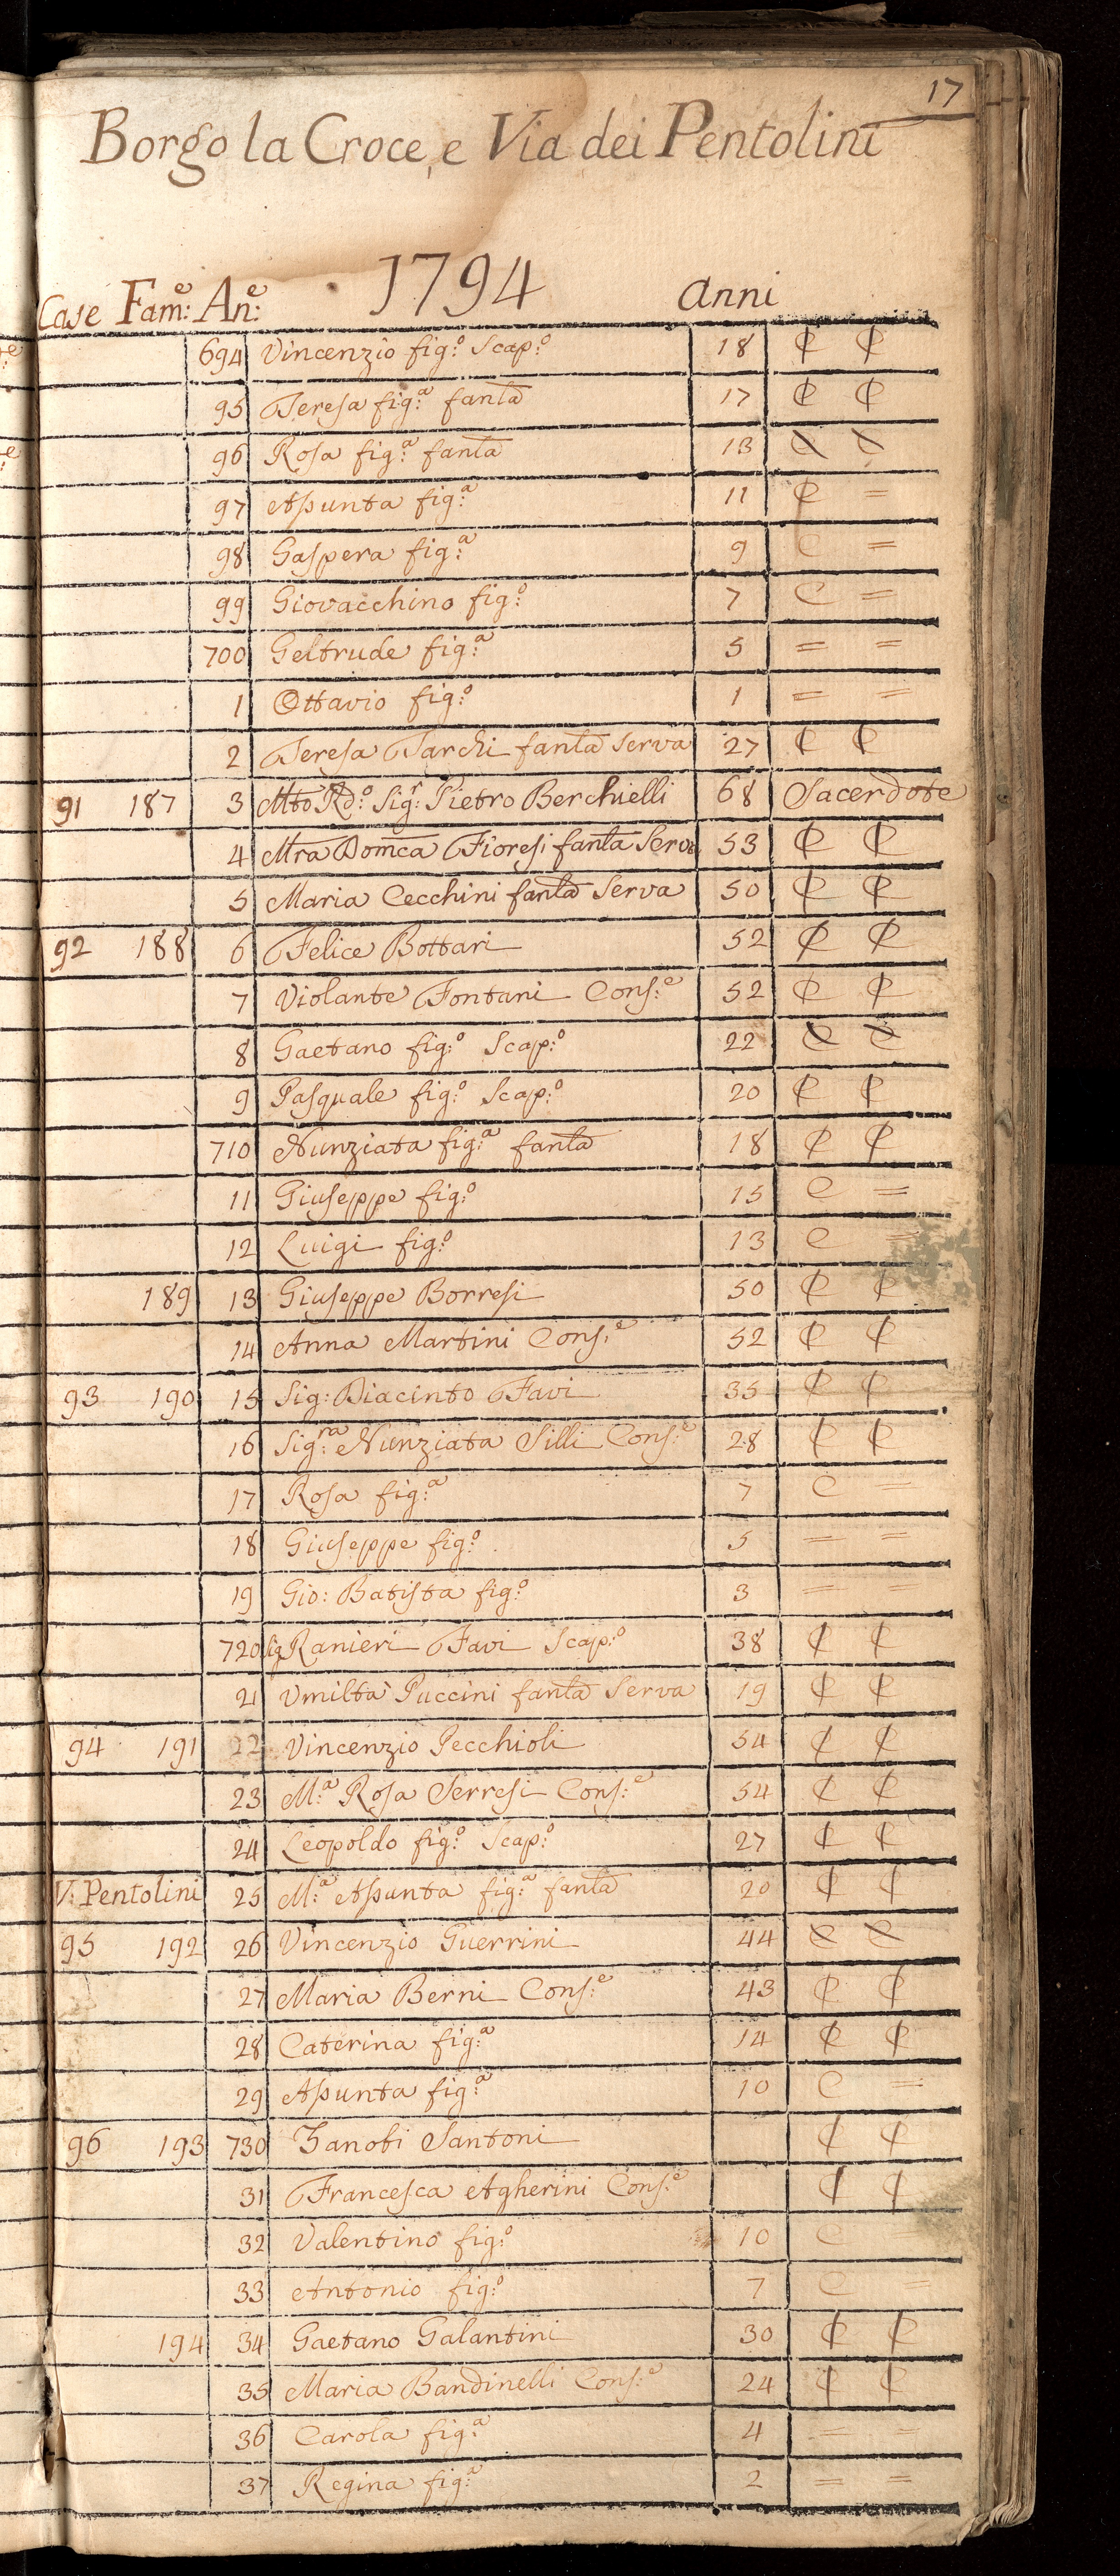 17
Borgo la Croce, e Via dei Pentolini
Case Fam:e An:e 1794 anni
694 Vincenzio fig:o Scap:o 18 ₵ ₵
95 Teresa fig:a fanla 17 ₵ ₵
96 Rosa fig:a fanla 13
97 Assunta fig:a 11 ₵ =
98 Gaspera fig:a 9 C =
99 Giovacchino fig:o 7 C =
700 Geltrude fig:a 5 = =
1 Ottavio fig:o 1 = =
2 Teresa Tarchi fanla Serva 27 ₵ ₵
91 187 3 Mto Rdo: Sigr: Pietro Berchielli 68 Sacerdote
4 Mra Domca Fioresi fanla Serva 53 ₵ ₵
5 Maria Cecchini fanla Serva 50 ₵ ₵
92 188 6 Felice Bottari 52 ₵ ₵
7 Violante Fontani Cons:e 52 ₵ ₵
8 Gaetano fig:o Scap:o 22
9 Pasquale fig:o Scap:o 20 ₵ ₵
710 Nunziata fig:a fanla 18 ₵ ₵
11 Giuseppe fig:o 15 C =
12 Luigi fig:o 13 C =
189 13 Giuseppe Borresi 50 ₵ ₵
14 Anna Martini Cons:e 52 ₵ ₵
93 190 15 Sig: Diacinto Favi 35 ₵ ₵
16 Sig:ra Nunziata Silli Cons:e 28 ₵ ₵
17 Rosa fig:a 7 C =
18 Giuseppe fig:o 5 = =
19 Gio: Batista fig:o 3 = =
720 Sig Ranieri Favi Scap:o 38 ₵ ₵
21 Umiltà Puccini fanla Serva 19 ₵ ₵
94 191 22 Vincenzio Pecchioli 54 ₵ ₵
23 M:a Rosa Serresi Cons:e 54 ₵ ₵
24 Leopoldo fig:o Scap:o 27 ₵ ₵
V: Pentolini 25 M:a Assunta fig:a fanla 20 ₵ ₵
95 192 26 Vincenzio Guerrini 44
27 Maria Berni Cons:e 43 ₵ ₵
28 Caterina fig:a 14 ₵ ₵
29 Assunta fig:a 10 C =
96 193 730 Zanobi Santoni ₵ ₵
31 Francesca Agherini Cons:e ₵ ₵
32 Valentino fig:o 10 C
33 Antonio fig:o 7 C
194 34 Gaetano Galantini 30 ₵ ₵
35 Maria Bandinelli Cons:e 24 ₵ ₵
36 Carola fig:a 4 = =
37 Regina fig:a 2 = =